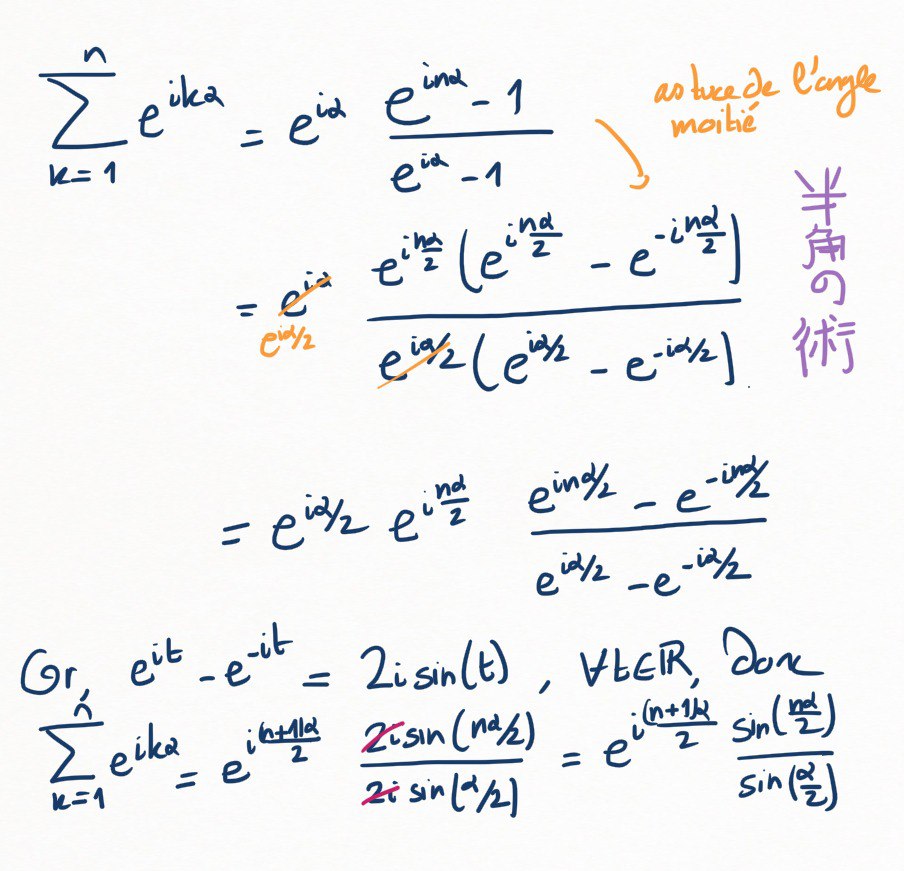 \sum_{k=1}^{n} e^{ikα} = e^{iα} \frac{e^{inα} - 1}{e^{iα} - 1}
astuce de l'angle
moitié
= e^{iα} \frac{e^{i\frac{nα}{2}} (e^{i\frac{nα}{2}} - e^{-i\frac{nα}{2}})}{e^{iα/2} (e^{iα/2} - e^{-iα/2})}
e^{iα/2}
半角の術
= e^{iα/2} e^{i\frac{nα}{2}} \frac{e^{inα/2} - e^{-inα/2}}{e^{iα/2} - e^{-iα/2}}
Or, e^{it} - e^{-it} = 2i sin(t), ∀t∈ℝ, Donc
\sum_{k=1}^{n} e^{ikα} = e^{i\frac{(n+1)α}{2}} \frac{2i sin(nα/2)}{2i sin(α/2)} = e^{i\frac{(n+1)α}{2}} \frac{sin(\frac{nα}{2})}{sin(\frac{α}{2})}